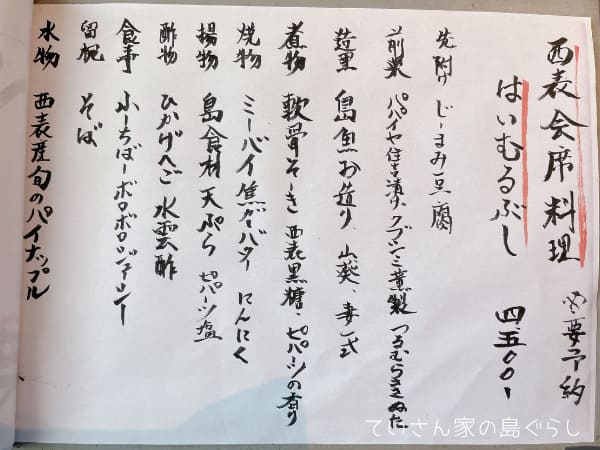 西表会席料理 必要予約
はいむるぶし 四、五〇〇、
先附け じーまみ豆腐
前菜 パパイヤ住吉漬け、クブシミ薫製 つるむらさきぬた
造里 島魚お造り、山葵、妻一式
煮物 軟骨そーき 西表黒糖、ピパーツの香り
焼物 ミーバイ焦がしバター にんにく
揚物 島食材天ぷら ピパーツ塩
酢物 ひかげへご 水雲酢
食事 ふーちばーボロボロジューシー
留椀 そば
水物 西表産旬のパイナップル
ていさん家の島ぐらし